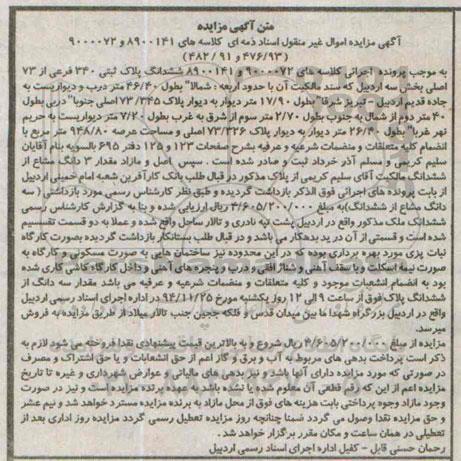 متن آگهی مزایده
آگهی مزایده اموال غیر منقول اسناد ذمه ای کلاسه های ۸۹۰۰۱۴۱ و ۹۰۰۰۰۷۲
(۴۸۲ / ۹۱ و ۴۷۶/۹۳)
به موجب پرونده اجرائی کلاسه های ۹۰۰۰۰۷۲ و ۸۹۰۰۱۴۱ ششدانگ پلاک ثبتی ۳۴۰ فرعی از ۷۳
اصلی بخش سه اردبیل که سند مالکیت آن با حدود اربعه : شمالا" بطول ۴۶/۴۰ متر درب و دیواریست به
جاده قدیم اردبیل - تبریز شرقا" بطول ۱۷/۹۰ متر دیوار به دیوار پلاک ۷۳/۳۴۵ اصلی جنوبا" دربی بطول
۴۰ متر دوم از شمال به جنوب بطول ۲/۷۰ متر سوم از شرق به غرب بطول ۷/۲۰ متر دیواریست به حریم
نهر غربا" بطول ۲۶/۴۰ متر دیوار به دیوار پلاک ۷۳/۳۲۶ اصلی و مساحت عرصه ۹۴۸/۸۰ متر مربع با
انضمام کلیه متعلقات و منضمات شرعیه و عرفیه بشرح صفحات ۱۲۳ و ۱۲۵ دفتر ۶۹۵ بالسویه بنام آقایان
سلیم کریمی و مسلم آذر خرداد ثبت و صادر شده است . سپس اصل و مازاد مقدار ۳ دانگ مشاع از
ششدانگ مالکیت آقای سلیم کریمی از پلاک مذکور در قبال طلب بانک کارآفرین شعبه امام خمینی اردبیل
از بابت پرونده های اجرائی فوق الذکر بازداشت گردیده و طبق نظر کارشناس رسمی مورد بازداشتی ( سه
دانگ مشاع از ششدانگ)به مبلغ ۴/۶۰۵/۲۰۰/۰۰۰ ریال ارزیابی شده و بنا به گزارش کارشناس رسمی
ششدانگ ملک مذکور واقع در اردبیل پشت تپه نادری و تالار ساحل واقع شده و عملا به دو قسمت تقسیم
شده است و قسمتی از آن در ید بدهکار می باشد و در قبال طلب بستانکار بازداشت گردیده بصورت کارگاه
نبات پزی مورد بهره برداری بوده که در این محدوده نیز ساختمان هایی به صورت مسکونی و کارگاه به
صورت نیمه اسکلت و با سقف آهنی و شناژ افقی و درب و پنجره های آهنی و داخل کارگاه کاشی کاری شده
بود به انضمام انشعابات موجود و کلیه متعلقات و منضمات شرعیه و عرفیه می باشد مقدار سه دانگ از
ششدانگ پلاک فوق از ساعت ۹ الی ۱۲ روز یکشنبه مورخ ۹۴/۱۱/۲۵ در اداره اجرای اسناد رسمی اردبیل
واقع در اردبیل بزرگراه شهدا ما بین میدان قدس و فلکه ججین جنب تالار میلاد از طریق مزایده به فروش
میرسد.
مزایده از مبلغ ۴/۶۰۵/۲۰۰/۰۰۰ ریال شروع و به بالاترین قیمت پیشنهادی نقدا فروخته می شود لازم به
ذکر است پرداخت بدهی های مربوط به آب و برق و گاز اعم از حق انشعابات و یا حق اشتراک و مصرف
در صورتی که مورد مزایده دارای آنها باشد و نیز بدهی های مالیاتی و عوارض شهرداری و غیره تا تاریخ
مزایده اعم از این که رقم قطعی آن معلوم شده یا نشده باشد به عهده برنده مزایده است و نیز در صورت
وجود مازاد وجوه پرداختی بابت هزینه های فوق از محل مازاد به برنده مزایده مسترد خواهد شد و نیم عشر
و حق مزایده نقدا وصول می گردد ضمنا چنانچه روز مزایده تعطیل رسمی گردد مزایده روز اداری بعد از
تعطیلی در همان ساعت و مکان مقرر برگزار خواهد شد .
رحمان حسنی قابل - کفیل اداره اجرای اسناد رسمی اردبیل